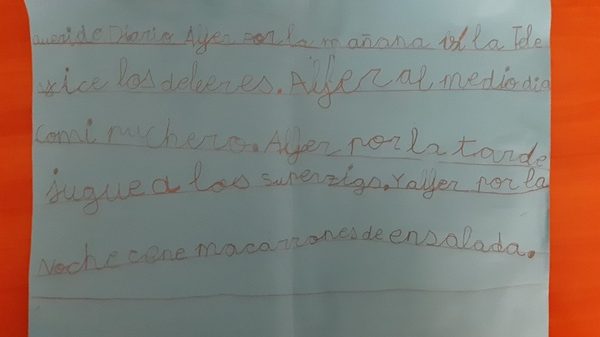 querido Diario Allfer por la mañana vi la Tele
y ice los deberes. Allfer al medio dia
comi puchero. Allfer por la tarde
jugue a los superzigs. Y allfer por la
Noche cene macarrones de ensalada.